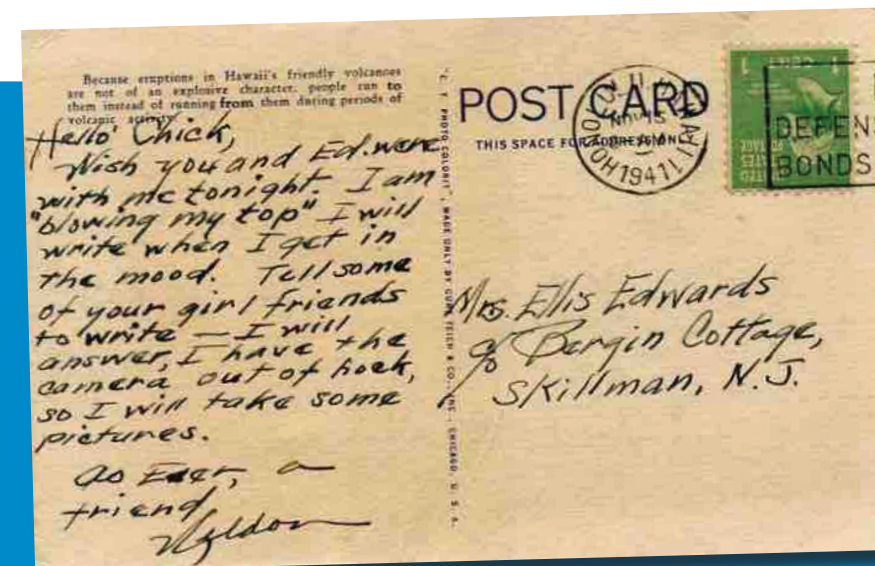 Because eruptions in Hawaii's friendly volcanoes
are not of an explosive character, people run to
them instead of running from them during periods of
volcanic activity.
Hello' Chick,
Wish you and Ed. were
with me tonight. I am
"blowing my top" I will
write when I get in
the mood. Tell some
of your girl friends
to write — I will
answer, I have the
camera out of hock,
so I will take some
pictures.
As Ever, a
friend
Weldon
"C. T. PHOTO COLORIT", MADE ONLY BY CURT TEICH & CO., INC., CHICAGO, U. S. A.
POST CARD
THIS SPACE FOR ADDRESS ONLY
HONOLULU HAWAII
NOV 15
1941
1 CENT 1
UNITED
STATES
POSTAGE
DEFENS
BONDS
Mrs. Ellis Edwards
c/o Bergin Cottage,
Skillman, N.J.